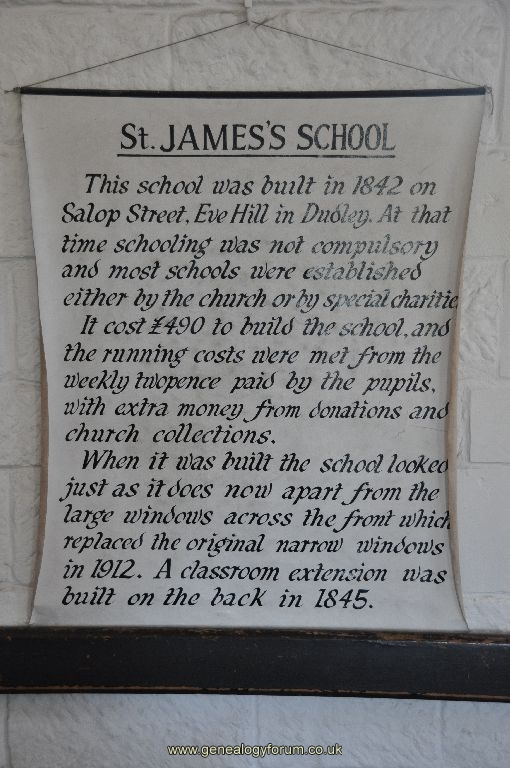 St. JAMES'S SCHOOL
This school was built in 1842 on
Salop Street, Eve Hill in Dudley. At that
time schooling was not compulsory
and most schools were established
either by the church or by special charitie
It cost £490 to build the school, and
the running costs were met from the
weekly twopence paid by the pupils,
with extra money from donations and
church collections.
When it was built the school looked
just as it does now apart from the
large windows across the front which
replaced the original narrow windows
in 1912. A classroom extension was
built on the back in 1845.
www.genealogyforum.co.uk